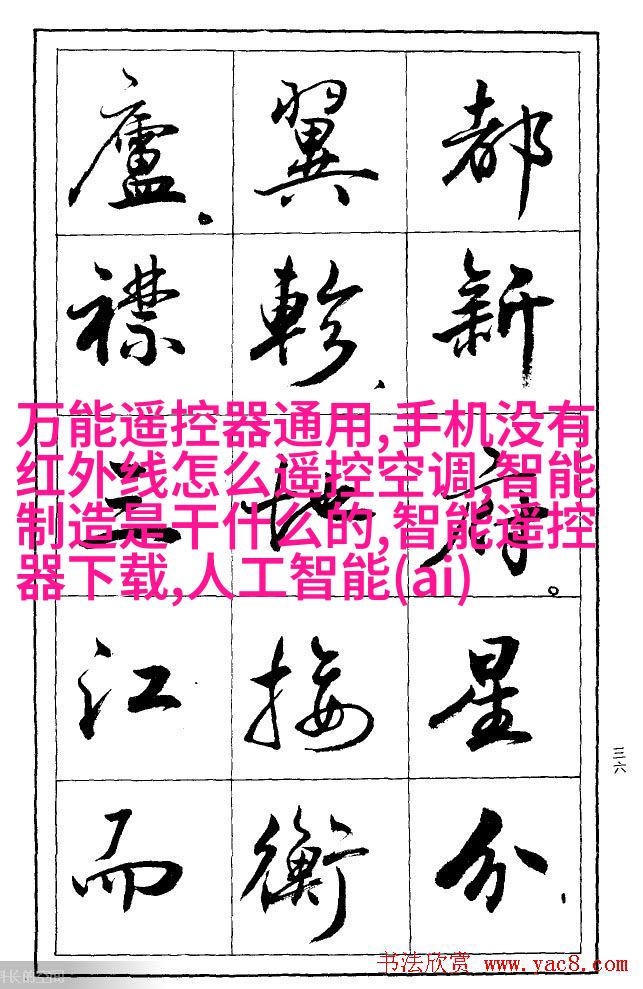 都新府。星分、
翼軫、地接衡
廬。襟三江而
万能遥控器通用,手机没有
红外线怎么遥控空调,智能
制造是干什么的,智能遥控
器下载,人工智能(ai)
三六
书法欣赏 www.yac8.com
长的空间